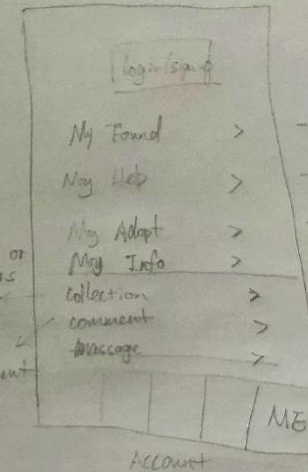 login/signup
My Found >
My Help >
My Adopt >
or
My Info >
collection >
comment >
massage >
ME
Account